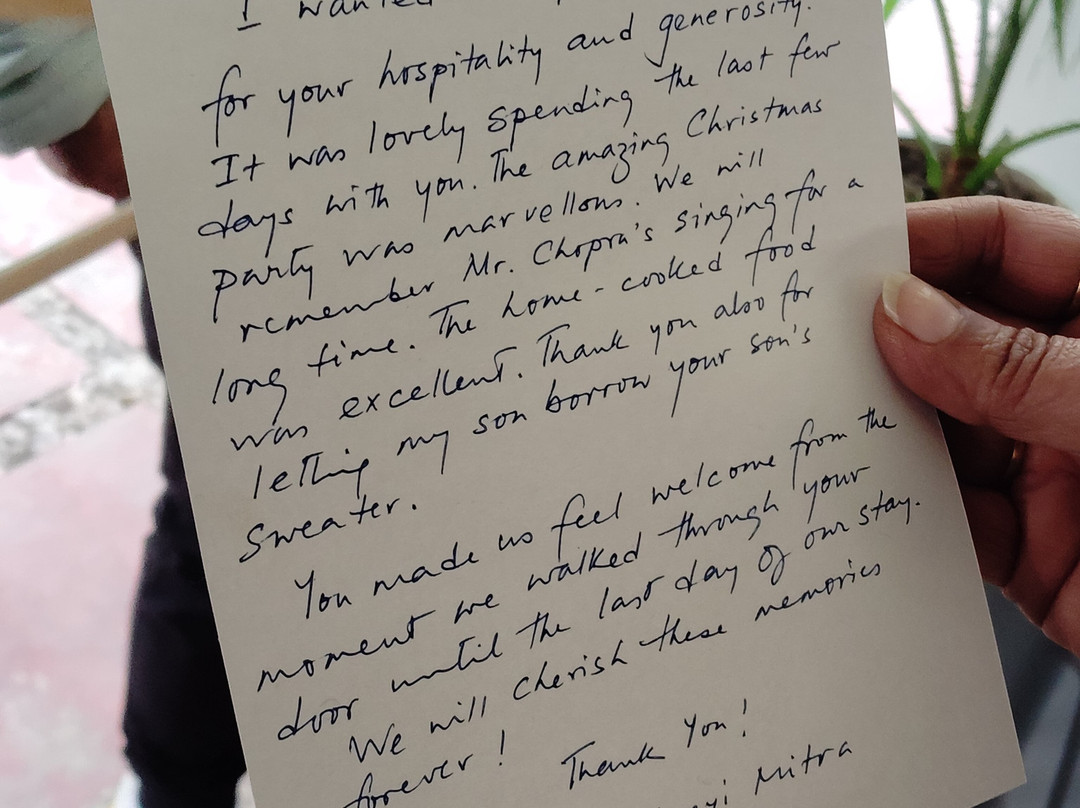 I wanted
for your hospitality and generosity.
It was lovely spending the last few
days with you. The amazing Christmas
party was marvellous. We will
remember Mr. Chopra's singing for a
long time. The home-cooked food
was excellent. Thank you also for
letting my son borrow your son's
sweater.
You made us feel welcome from the
moment we walked through your
door until the last day of our stay.
We will cherish these memories
forever!
Thank You!
Mitra